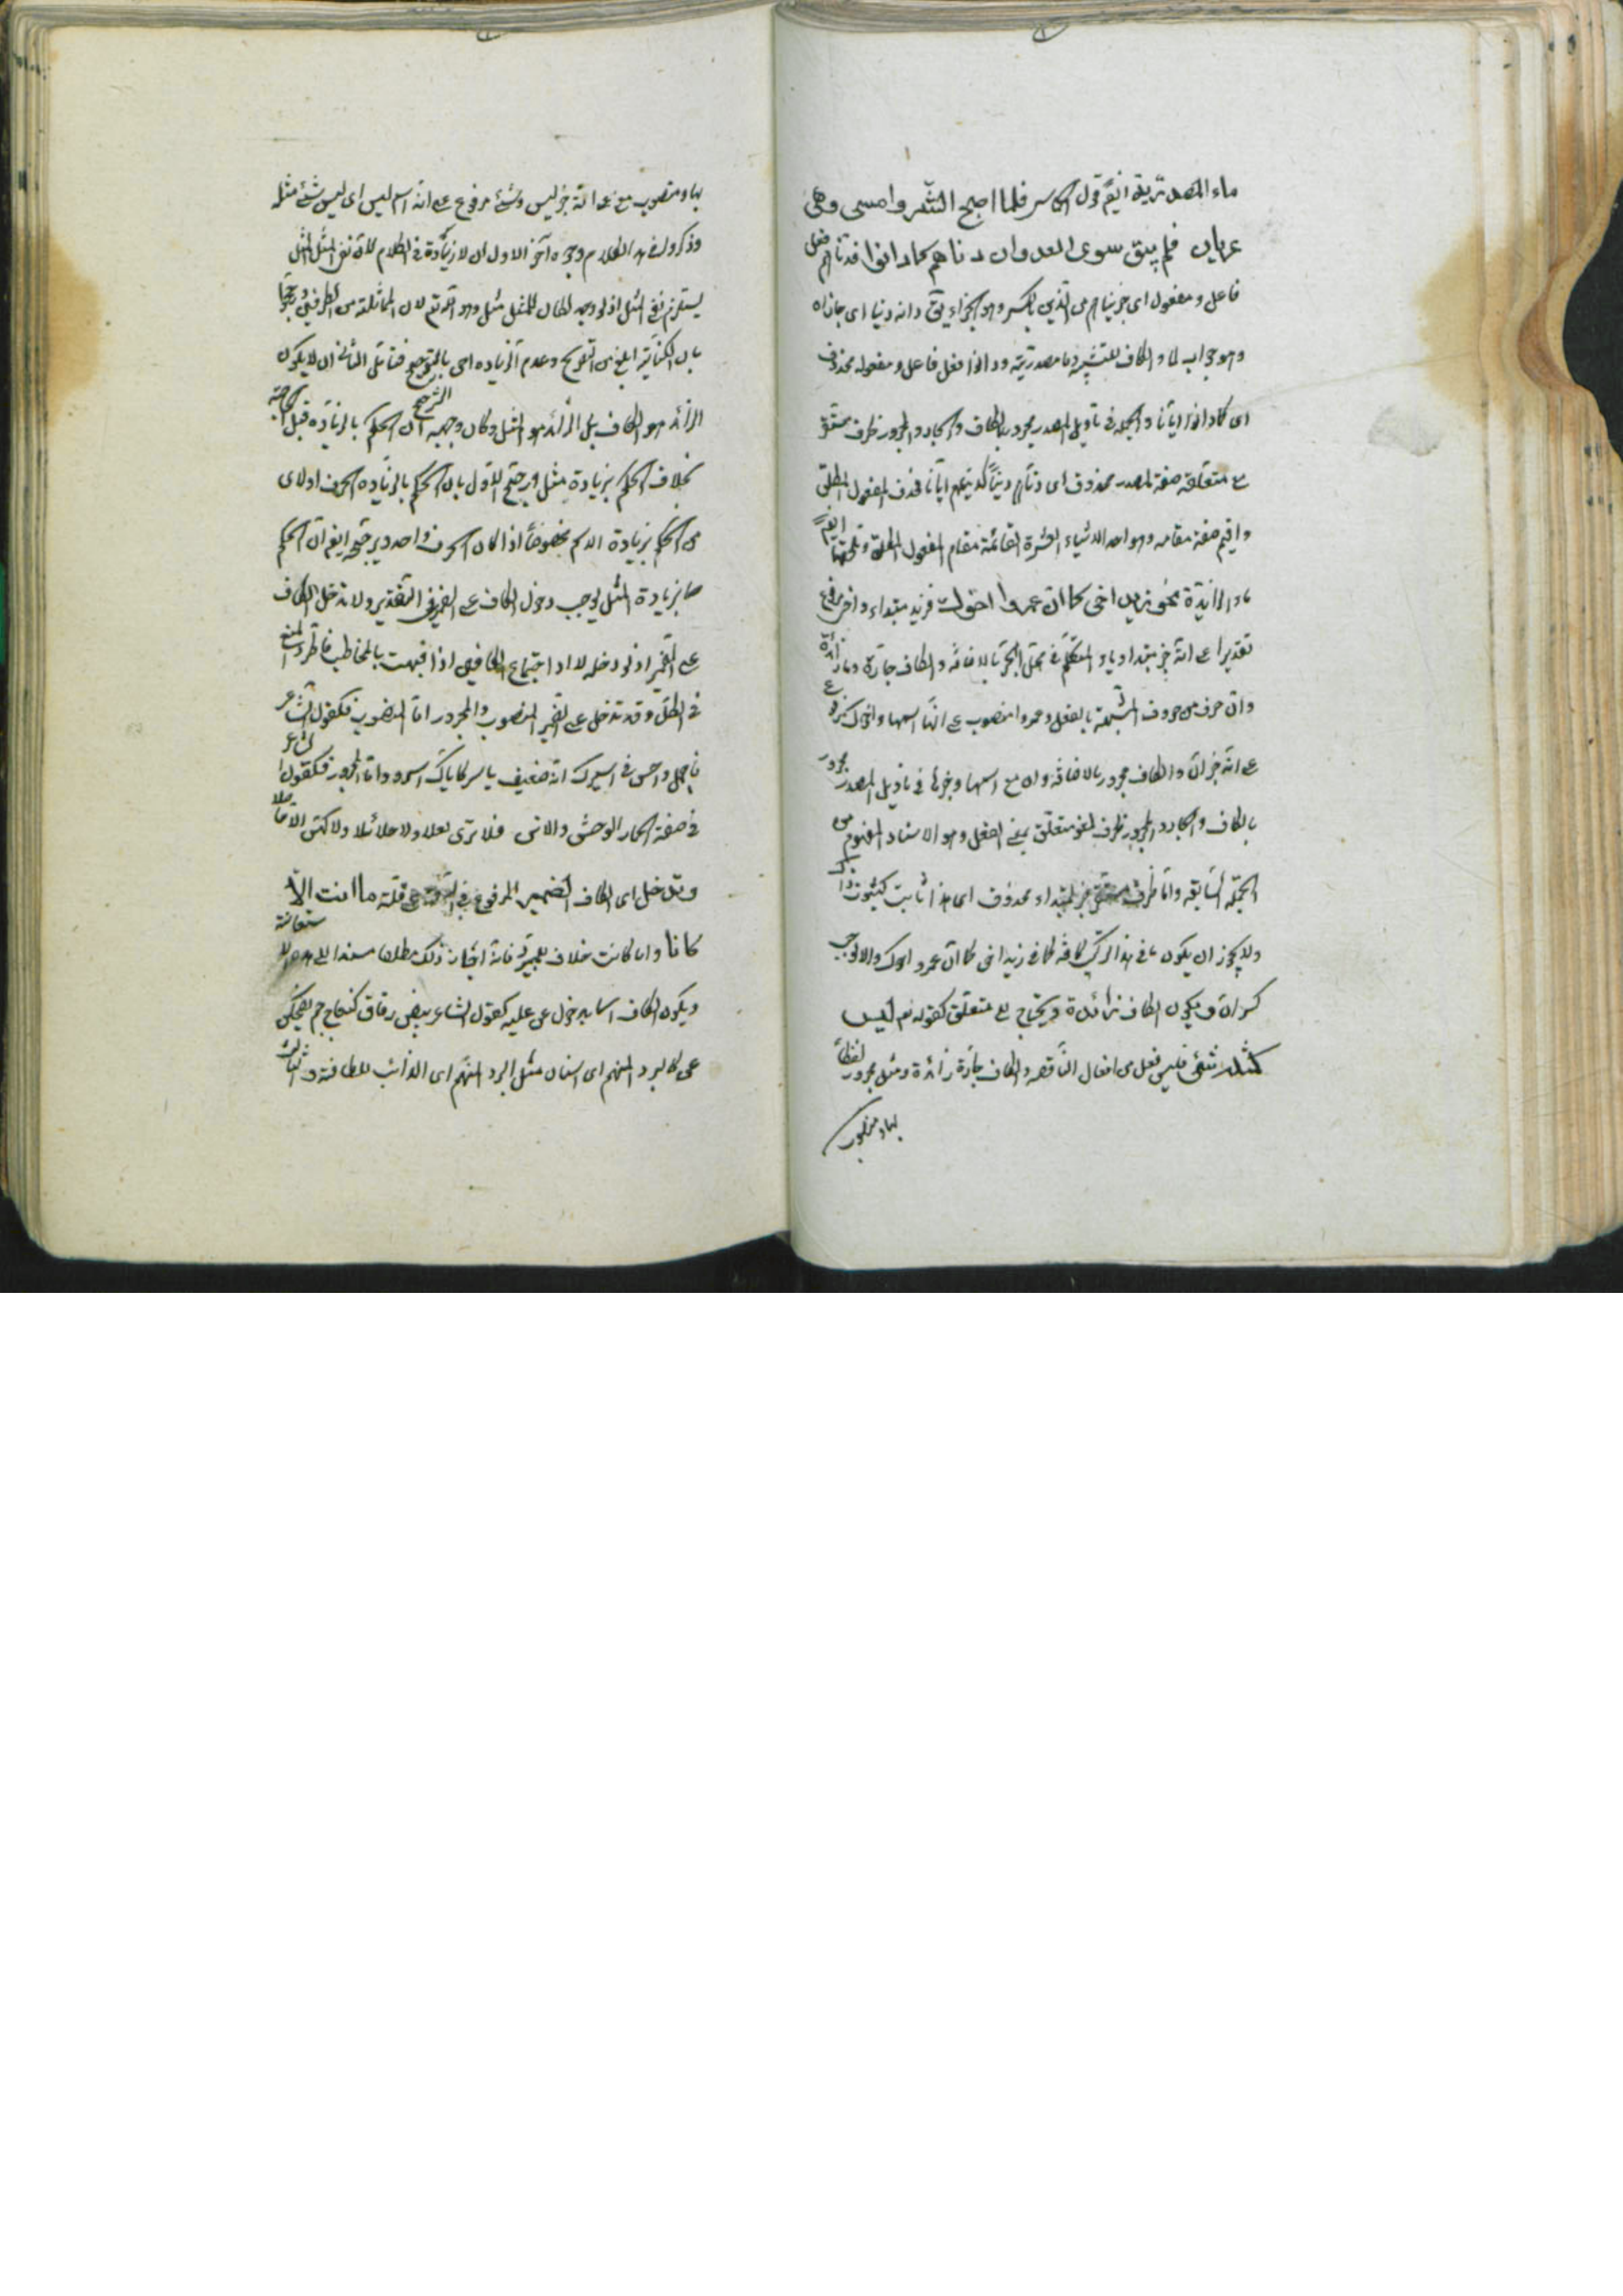 ماء المصدرية ايضا قول الشاعر فلما اصبح الشر وامسى وهى
عريان فلم يبق سوى العدوان دناهم كما دانوا فدناهم فعل
فاعل ومفعول اى جزيناهم من الدين بالكسر وهو الجزاء يق دانه دينا اى جازاه
وهو جواب لما والكاف للتشبيه وما مصدرية ودانوا فعل فاعل ومفعوله محذوف
اى كما دانوا ايانا والجملة فى تاويل المصدر مجرور بالكاف والجار والمجرور ظرف مستقر
مع متعلقه صفة لمصدر محذوف اى دناهم دينا كدينهم ايانا فحذف المفعول المطلق
واقيم صفة مقامه وهو احد الاشياء العشرة القائمة مقام المفعول المطلق وتلحقها ايضا
ماء الزائدة نحو زيد اخى كما ان عمروا اخوك فزيد مبتداء واخى مرفوع
تقديرا على انه خبر مبتدا وياء المتكلم فى محل الجر بالاضافة والكاف جارة وما زائدة
وان حرف من حروف المشبهة بالفعل وعمروا منصوب على انها اسمها واخوك مرفوع
على انه خبر ان والكاف مجرور بالاضافة وان مع اسمها وخبرها فى تاويل المصدر مجرور
بالكاف والجار والمجرور ظرف لغو متعلق بمعنى الفعل وهو الاسناد المفهوم من
الجملة السابقة واما ظرف مستقر خبر لمبتداء محذوف اى هذا ثابت كثبوت ذاك
ولا يجوز ان يكون ما فى هذا التركيب كافة كما فى زيد اخى كما ان عمرو اخوك والا لوجب
كسر ان و يكون الكاف زائدة ويحتاج الى متعلق كقوله تع ليس
كمثله شئ فليس فعل من افعال الناقصه والكاف جارة زائدة ومثل مجرور لفظا
بها ومنصوب
بها ومنصوب معنى على انه خبر ليس وشئ مرفوع على انه اسم ليس اى ليس شئ مثله
وذكروا فى هذا الكلام وجوه آخر الاول ان لا زيادة فى الكلام لان نفى المثل المثل
يستلزم نفى المثل اذ لو وجد لكان للمثل مثل وهو لان المماثلة من الطرفين
بان الكناية ابلغ من التصريح وعدم الزيادة احق بالترجيح فتامل الثانى ان لا يكون
الزائد هو الكاف بل الزائد هو المثل وكان وجهه الترجيح ان الحكم بالزيادة قبل الحاجة
بخلاف الحكم بزيادة مثل ورجح الاول بان الحكم بالزيادة الحرف اولى
من الحكم بزيادة الاسم خصوصا اذا كان الحرف واحد ويرجح ايضا ان الحكم
بزيادة المثل يوجب دخول الكاف على الضمير فى التقدير ولا تدخل الكاف
على الضمير اذ لو دخله لادا اجتماع الكافين اذا شبهت بالمخاطب فاطرد المنع
فى الكل وقد تدخل على الضمير المنصوب والمجرور اما المنصوب فكقول الشاعر
فاجمل واحسن فى اسيرك انه ضعيف يا سر كاياك آسر واما المجرور فكقول الشاعر
فى صفة الحمار الوحش والاتن فلا ترى بعلا ولا حلائلا ولا كهن الا حاظلا
وتدخل اى الكاف الضمير المرفوع على قلة ما انت الا
كانا واما كانت خلاف فانه ذلك مطلقا
ويكون الكاف اسما بدخول عن عليه كقول الشاعر بيض رقاق كنعاج جم يضحكن
عن كالبرد المنهم اى اسنان مثل البرد المنهم اى الذائب للطافته والثالث